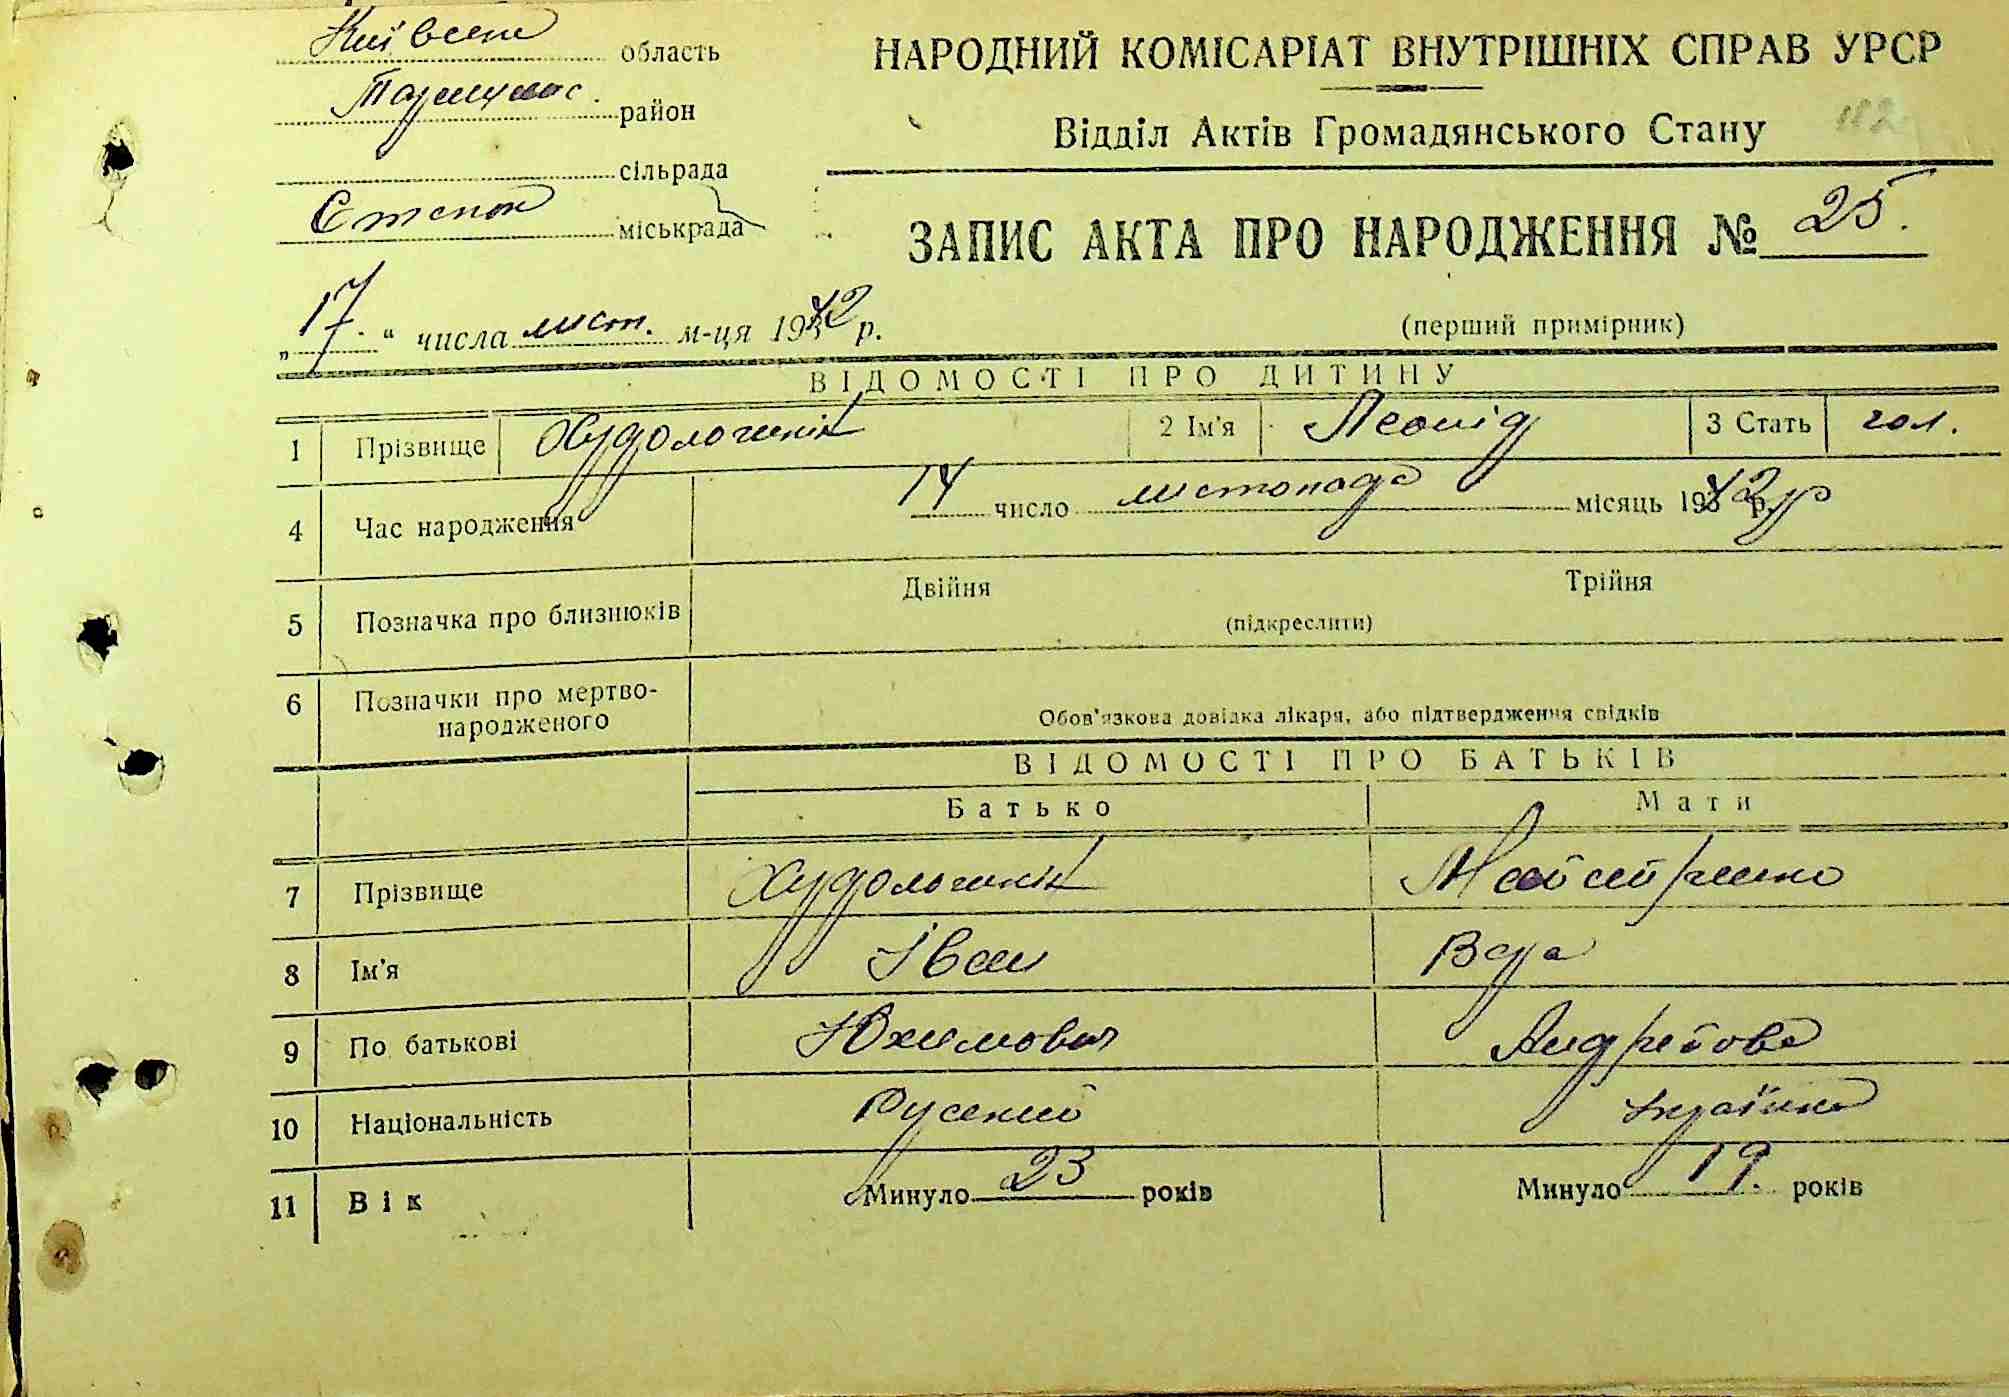 Київська область
НАРОДНИЙ КОМІСАРІАТ ВНУТРІШНІХ СПРАВ УРСР
район
Відділ Актів Громадянського Стану
182
сільрада
міськрада
ЗАПИС АКТА ПРО НАРОДЖЕННЯ № 25.
„17.“ числа лист. м-ця 1942 р.
(перший примірник)
ВІДОМОСТІ ПРО ДИТИНУ
1 Прізвище 2 Ім'я Леонід 3 Стать чол.
4 Час народження 14 число листопада місяць 1942 р.
5 Позначка про близнюків Двійня Трійня
(підкреслити)
6 Позначки про мертво-
народженого
Обов'язкова довідка лікаря, або підтвердження свідків
ВІДОМОСТІ ПРО БАТЬКІВ
Батько Мати
7 Прізвище
8 Ім'я Іван Вера
9 По батькові Юхимович Андрейова
10 Національність Руський Українка
11 Вік Минуло 23 років Минуло 19. років